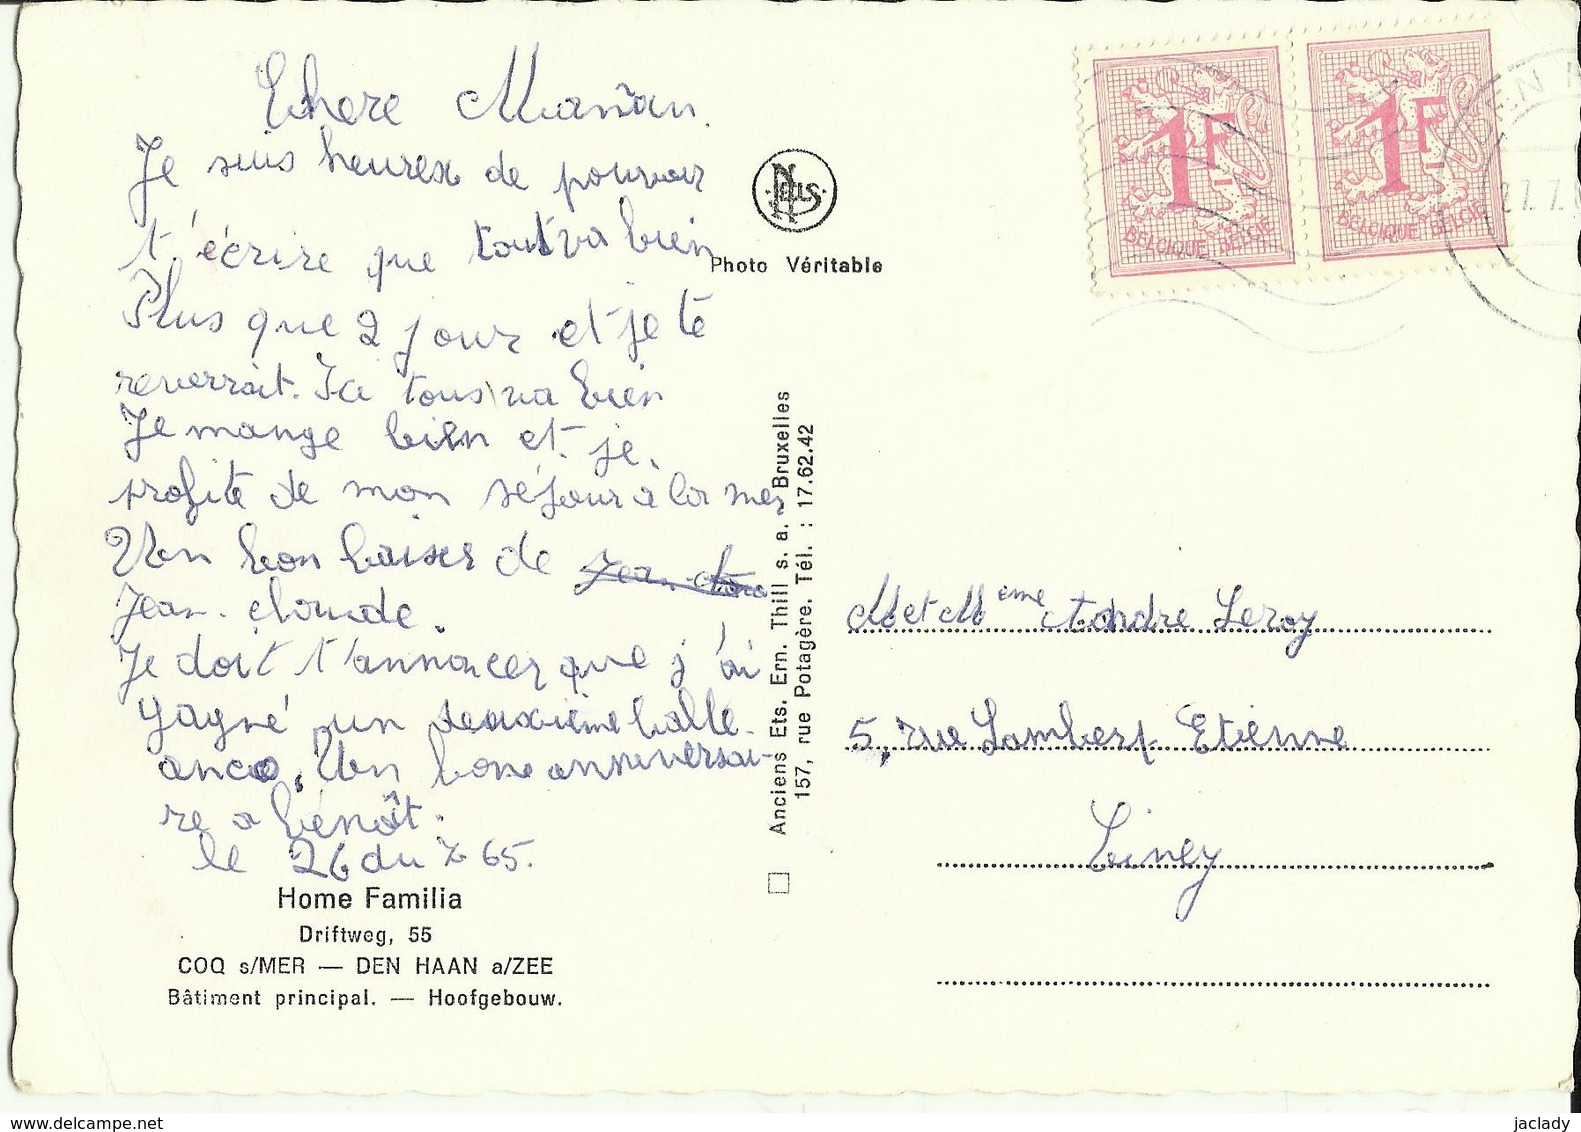 Chere Maman.
Je suis heurex de pouvoir
t'écrire que tout va bien
Plus que 2 jour et je te
reverrait. Ici tous va bien
Je mange bien et je
profite de mon séjour a la mer
Un bon baiser de
Jean-cloude.
Je doit t'annoncer que j'ai
gagné un deuxième balle.
Un bone anniversai-
re a bénoît.
le 26 du 7 65.
Home Familia
Driftweg, 55
COQ s/MER — DEN HAAN a/ZEE
Bâtiment principal. — Hoofgebouw.
Nels
Photo Véritable
Anciens Ets. Ern. Thill s. a. Bruxelles
157, rue Potagère. Tél. : 17.62.42
1F
BELGIQUE BELGIE
1F
BELGIQUE BELGIE
M et Mème Andre Leroy
5, rue Lambert Etienne
Ciney
jaclady